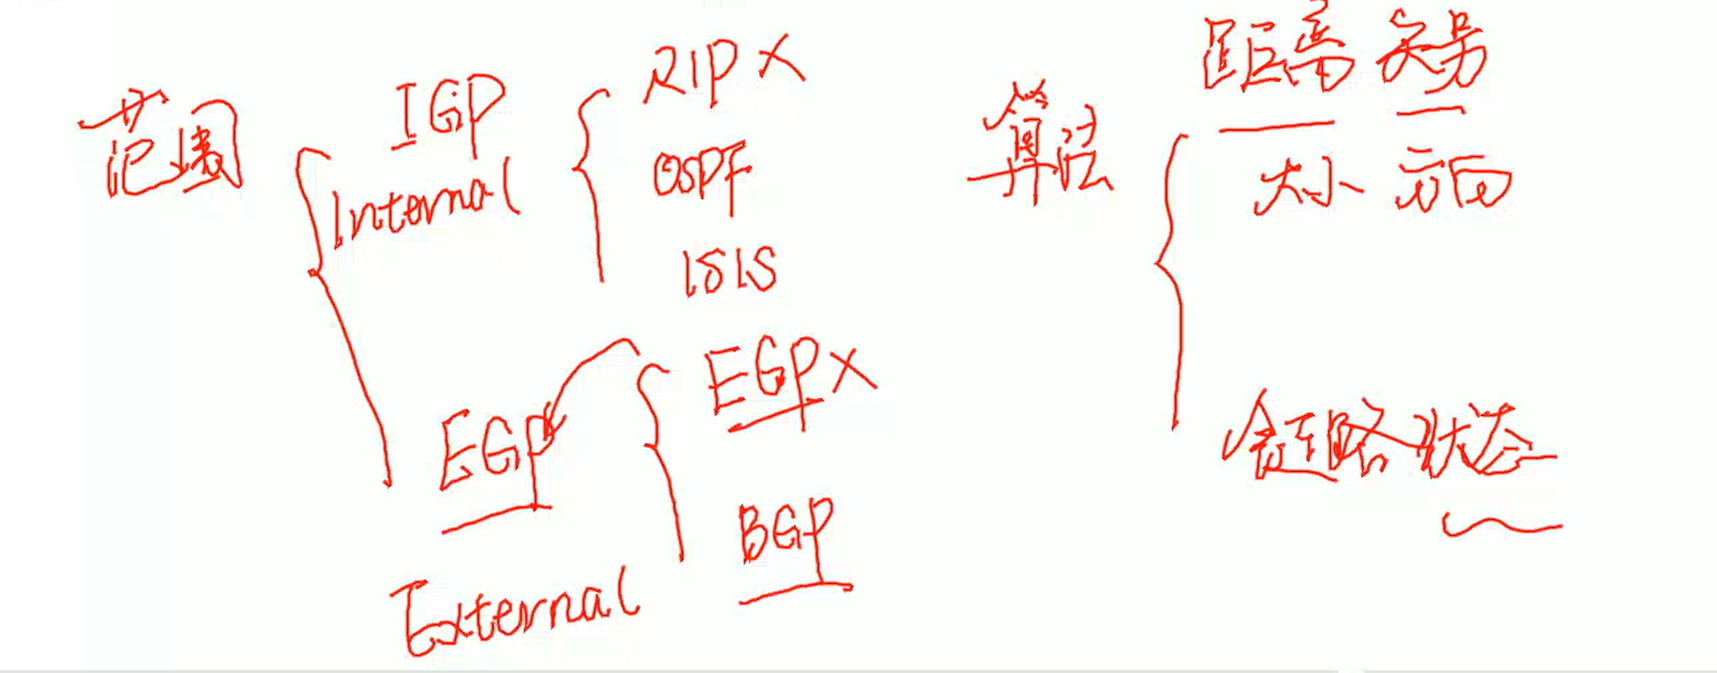 范围
IGP
Internal
RIP X
OSPF
ISIS
EGP
External
EGP X
BGP
算法
距离 矢量
大小 方向
链路状态